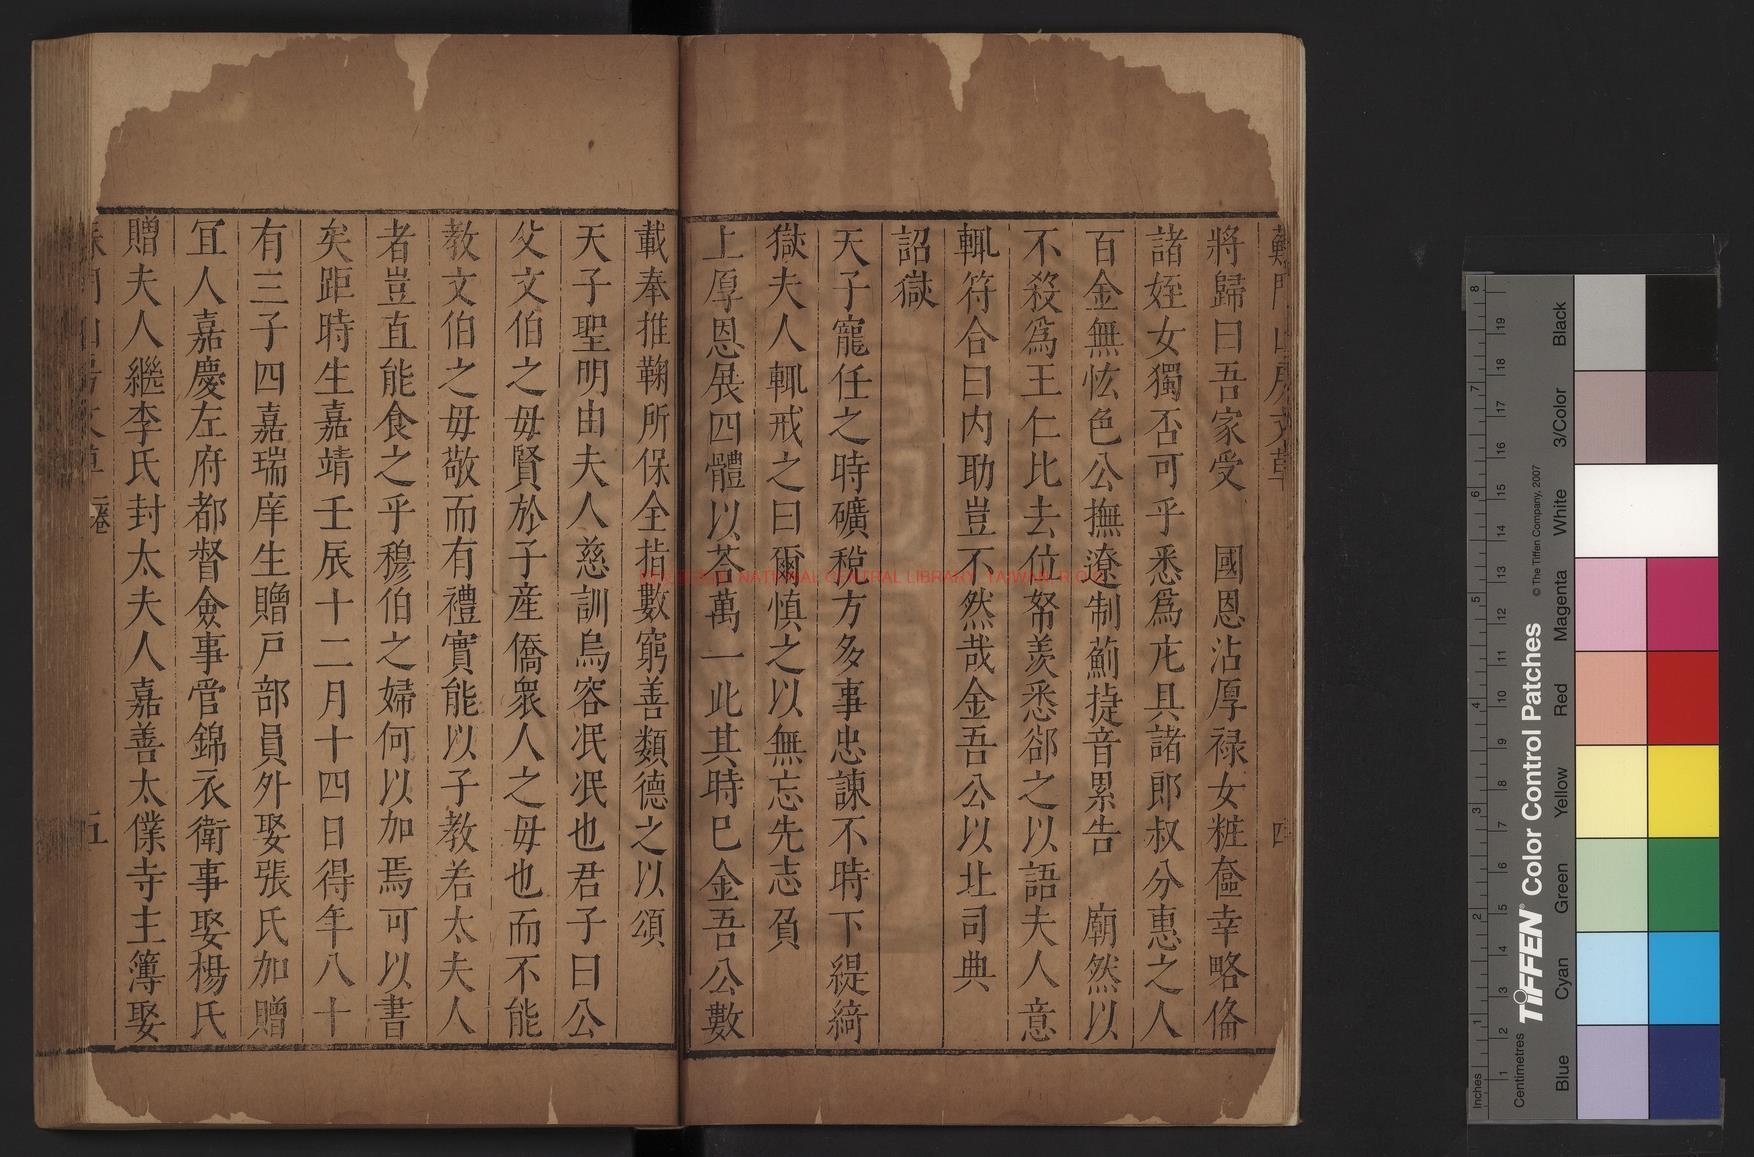 將歸曰吾家受　國恩沾厚禄女粧奩幸略俻
諸姪女獨否可乎悉爲庀具諸郎叔分惠之人
百金無恡色公撫遼制薊㨗音累告　廟然以
不殺爲王仁比去位帑羡悉郤之以語夫人意
輒符合曰内助豈不然哉金吾公以北司典
詔獄
天子寵任之時礦稅方多事忠諫不時下緹綺
獄夫人輒戒之曰爾慎之以無忘先志負
上厚恩展四體以荅萬一此其時巳金吾公數
載奉推鞠所保全指數窮善類德之以頌
天子聖明由夫人慈訓烏容冺冺也君子曰公
父文伯之毋賢於子産僑衆人之毋也而不能
教文伯之毋敬而有禮實能以子教若太夫人
者豈直能食之乎穆伯之婦何以加焉可以書
矣距時生嘉靖壬辰十二月十四日得年八十
有三子四嘉瑞庠生贈戸部員外娶張氏加贈
宜人嘉慶左府都督僉事管錦衣衛事娶楊氏
贈夫人繼李氏封太夫人嘉善太僕寺主簿娶
二卷
五
國家圖書館 NATIONAL CENTRAL LIBRARY, TAIWAN, R.O.C.
TIFFEN® Color Control Patches
© The Tiffen Company, 2007
Inches
Centimetres
Blue
Cyan
Green
Yellow
Red
Magenta
White
3/Color
Black